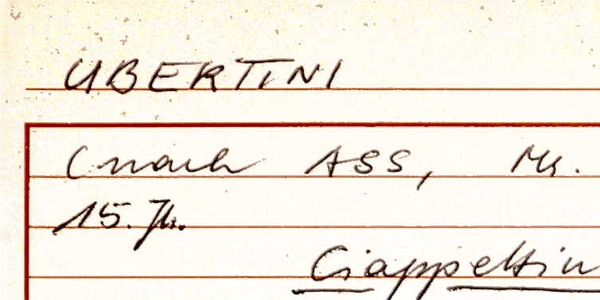 UBERTINI
(nach ASS, Ms.
15. Jh.
Ciappettin